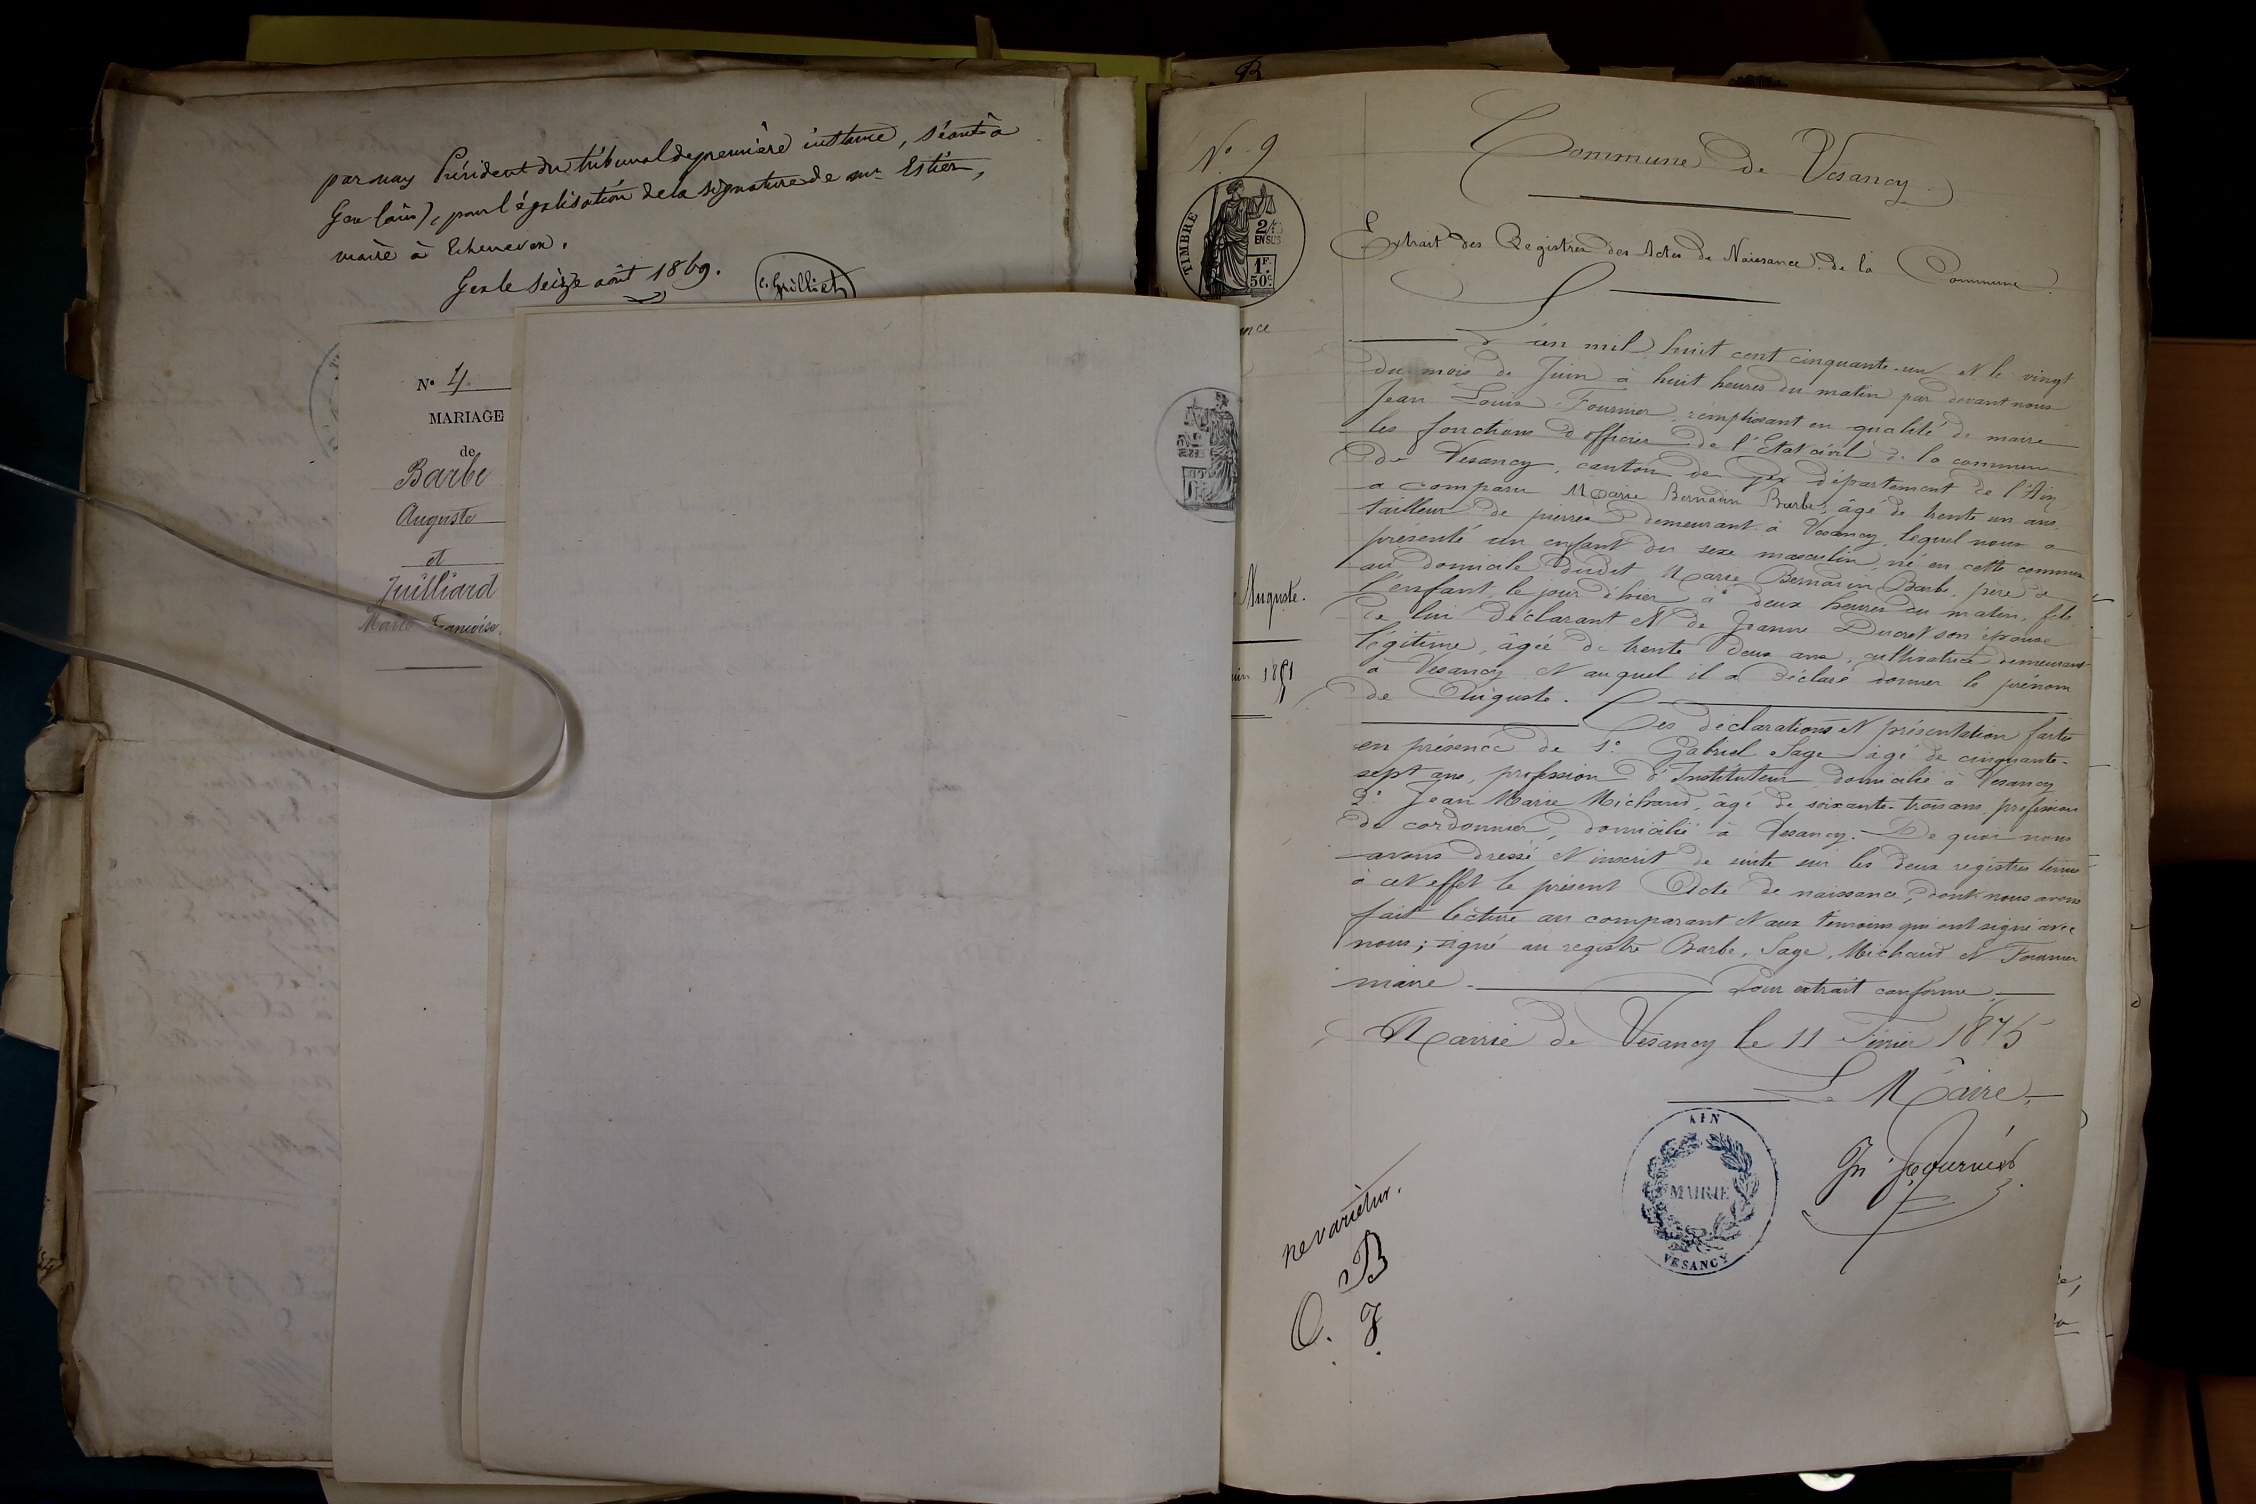 par nous Président du tribunal de première instance, séant à
Gex (ain), pour légalisation de la signature de mr Estier,
maire à Echenevex.
Gex le seize août 1869.
N° 4.
MARIAGE
de
Barbe
Auguste
et
Juilliard
Marie Françoise
N° 9
TIMBRE
2/10
EN SUS
1F.
50c
Commune de Vesancy
Extrait des Registres des Actes de Naissance de la Commune
L'an mil huit cent cinquante-un et le vingt
du mois de Juin à huit heures du matin par devant nous
Jean Louis Fournier remplissant en qualité de maire
les fonctions d'officier de l'Etat civil de la commune
de Vesancy, canton de Gex département de l'Ain
a comparu Marie Bernadin Barbe, âgé de trente un ans
tailleur de pierres demeurant à Vesancy, lequel nous a
présenté un enfant du sexe masculin né en cette commune
au domicile dudit Marie Bernadin Barbe, père de
l'enfant, le jour d'hier à deux heures du matin, fils
de lui déclarant et de Jeanne Ducret son épouse
légitime, âgée de trente deux ans, cultivatrice demeurant
à Vesancy et auquel il a déclaré donner le prénom
de Auguste.
Ces déclarations et présentation faites
en présence de 1° Gabriel Sage âgé de cinquante-
sept ans, profession d'Instituteur domicilié à Vesancy
2° Jean Marie Michaud, âgé de soixante-trois ans, profession
de cordonnier, domicilié à Vesancy. De quoi nous
avons dressé et inscrit de suite sur les deux registres tenus
à cet effet le présent Acte de naissance, dont nous avons
fait lecture au comparant et aux témoins qui ont signé avec
nous; signé au registre Barbe, Sage, Michaud et Fournier
maire. Pour extrait conforme
Mairie de Vesancy le 11 Février 1875
Le Maire,
Auguste.
1851
AIN
MAIRIE
VESANCY
Jn Fournier
ne varietur.
B
O. J.